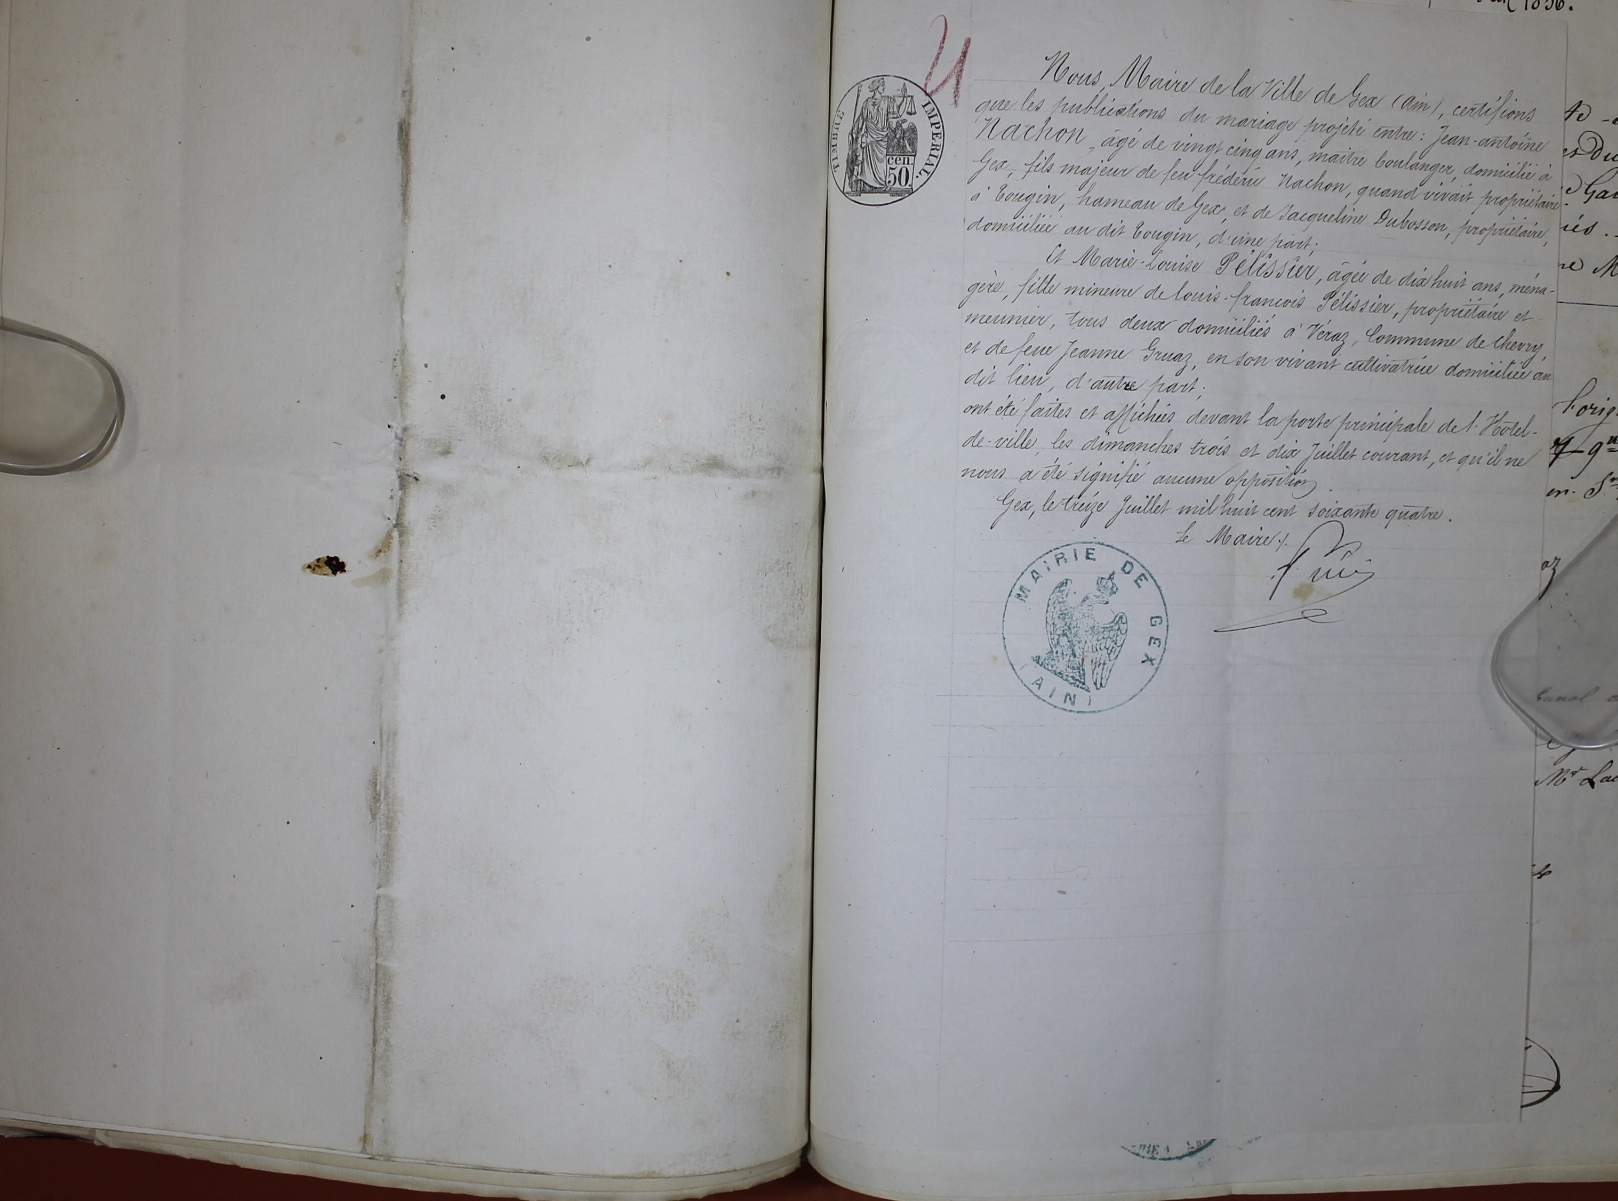 4
TIMBRE IMPERIAL.
50 cen
Nous, Maire de la Ville de Gex (Ain), certifions
que les publications du mariage projeté entre: Jean-antoine
Nachon, âgé de vingt cinq ans, maître boulanger, domicilié à
Gex, fils majeur de feu frédéric Nachon, quand vivait propriétaire
à Tougin, hameau de Gex, et de Jacqueline Dubosson, propriétaire,
domiciliée au dit Tougin, d'une part;
Et Marie-Louise Pélissier, âgée de dix huit ans, ména-
gère, fille mineure de louis-françois Pélissier, propriétaire et
meunier, tous deux domiciliés à Véraz, Commune de Chevry
et de feue Jeanne Gruaz, en son vivant cultivatrice domiciliée au
dit lieu, d'autre part;
ont été faites et affichées devant la porte principale de l'Hôtel-
de-ville, les dimanches trois et dix Juillet courant, et qu'il ne
nous a été signifié aucune opposition.
Gex, le treize Juillet mil huit cent soixante quatre.
Le Maire
MAIRIE DE GEX
(AIN)
1856.
Mr